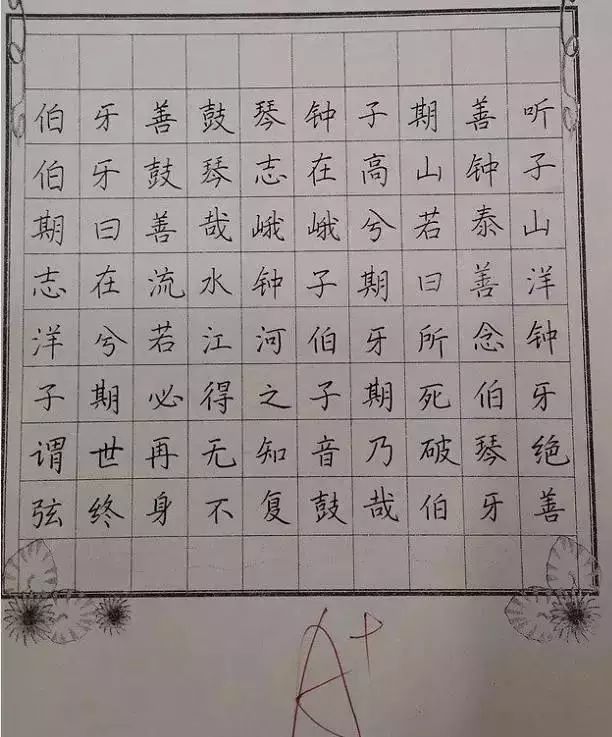 伯牙善鼓琴钟子期善听
伯牙鼓琴志在高山钟子
期曰善哉峨峨兮若泰山
志在流水钟子期曰善洋
洋兮若江河伯牙所念钟
子期必得之子期死伯牙
谓世再无知音乃破琴绝
弦终身不复鼓哉伯牙善
A+